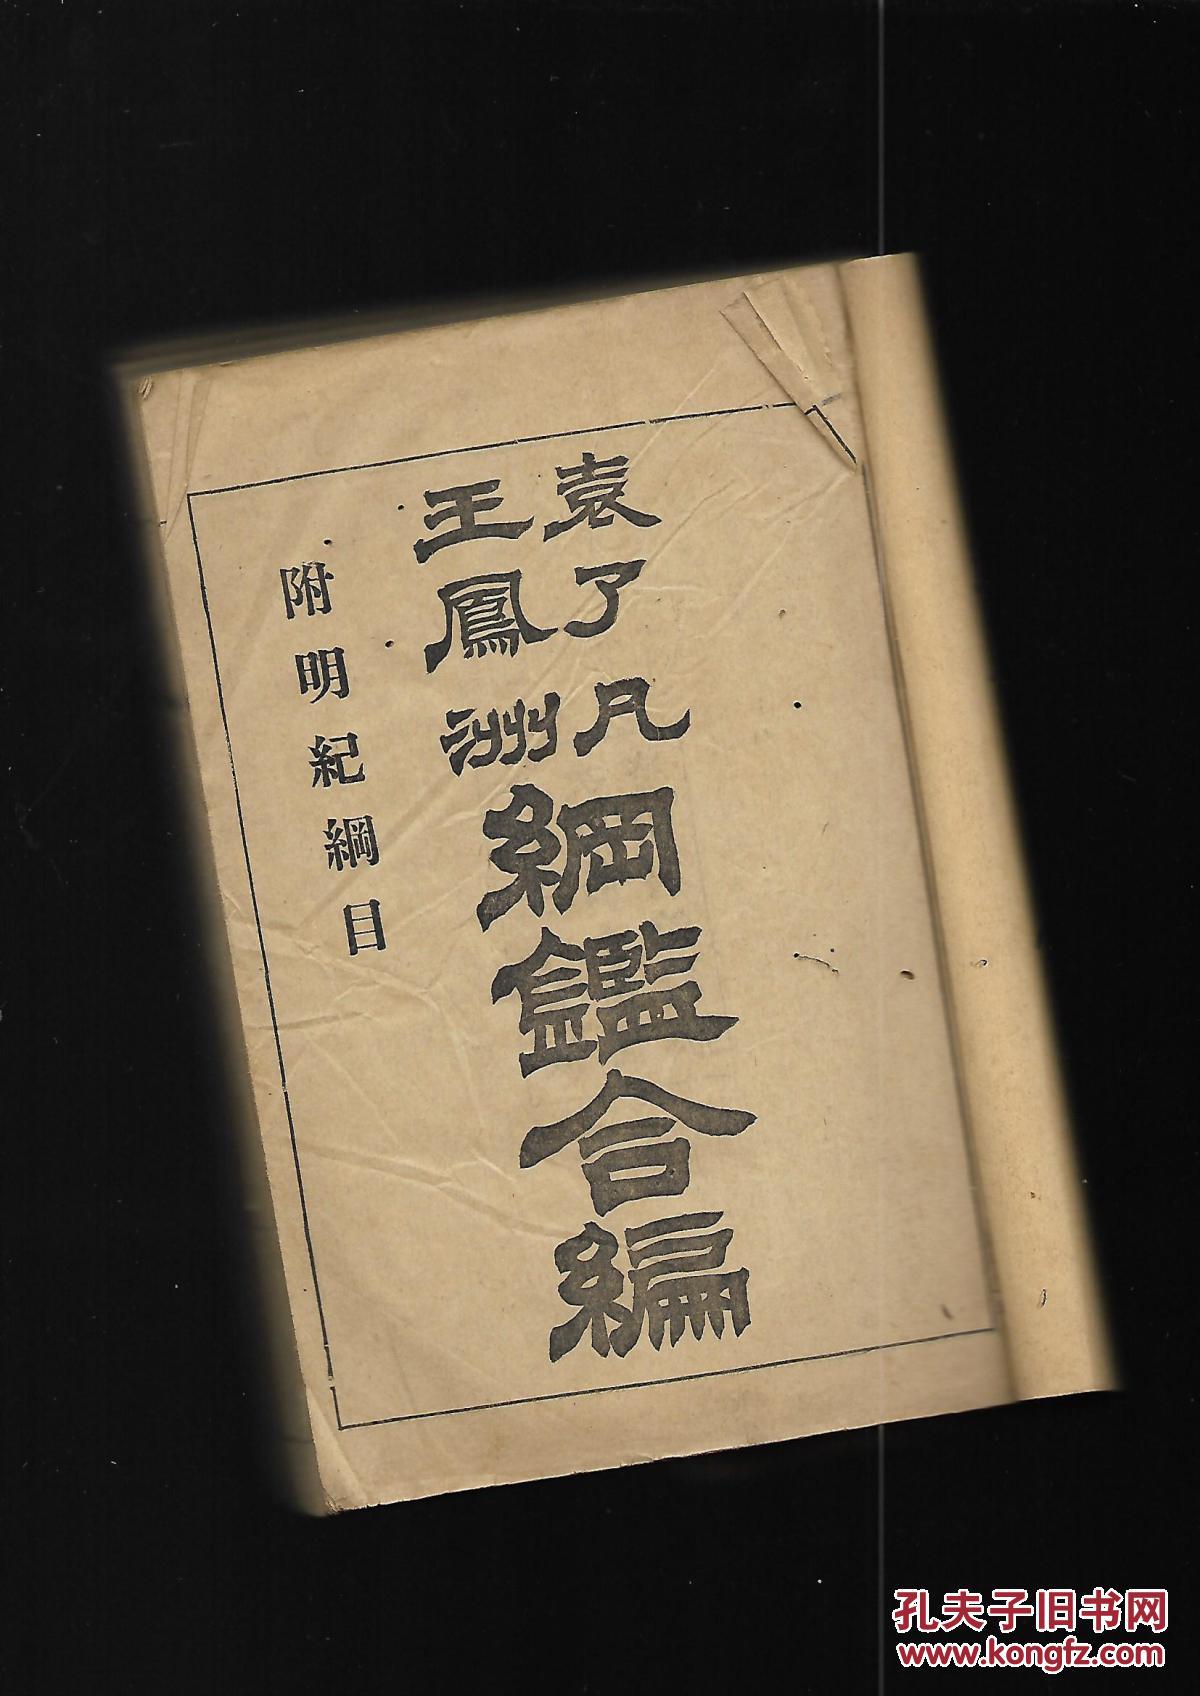 袁了凡
王鳳洲
綱鑑合編
附明紀綱目
孔夫子旧书网
www.kongfz.com